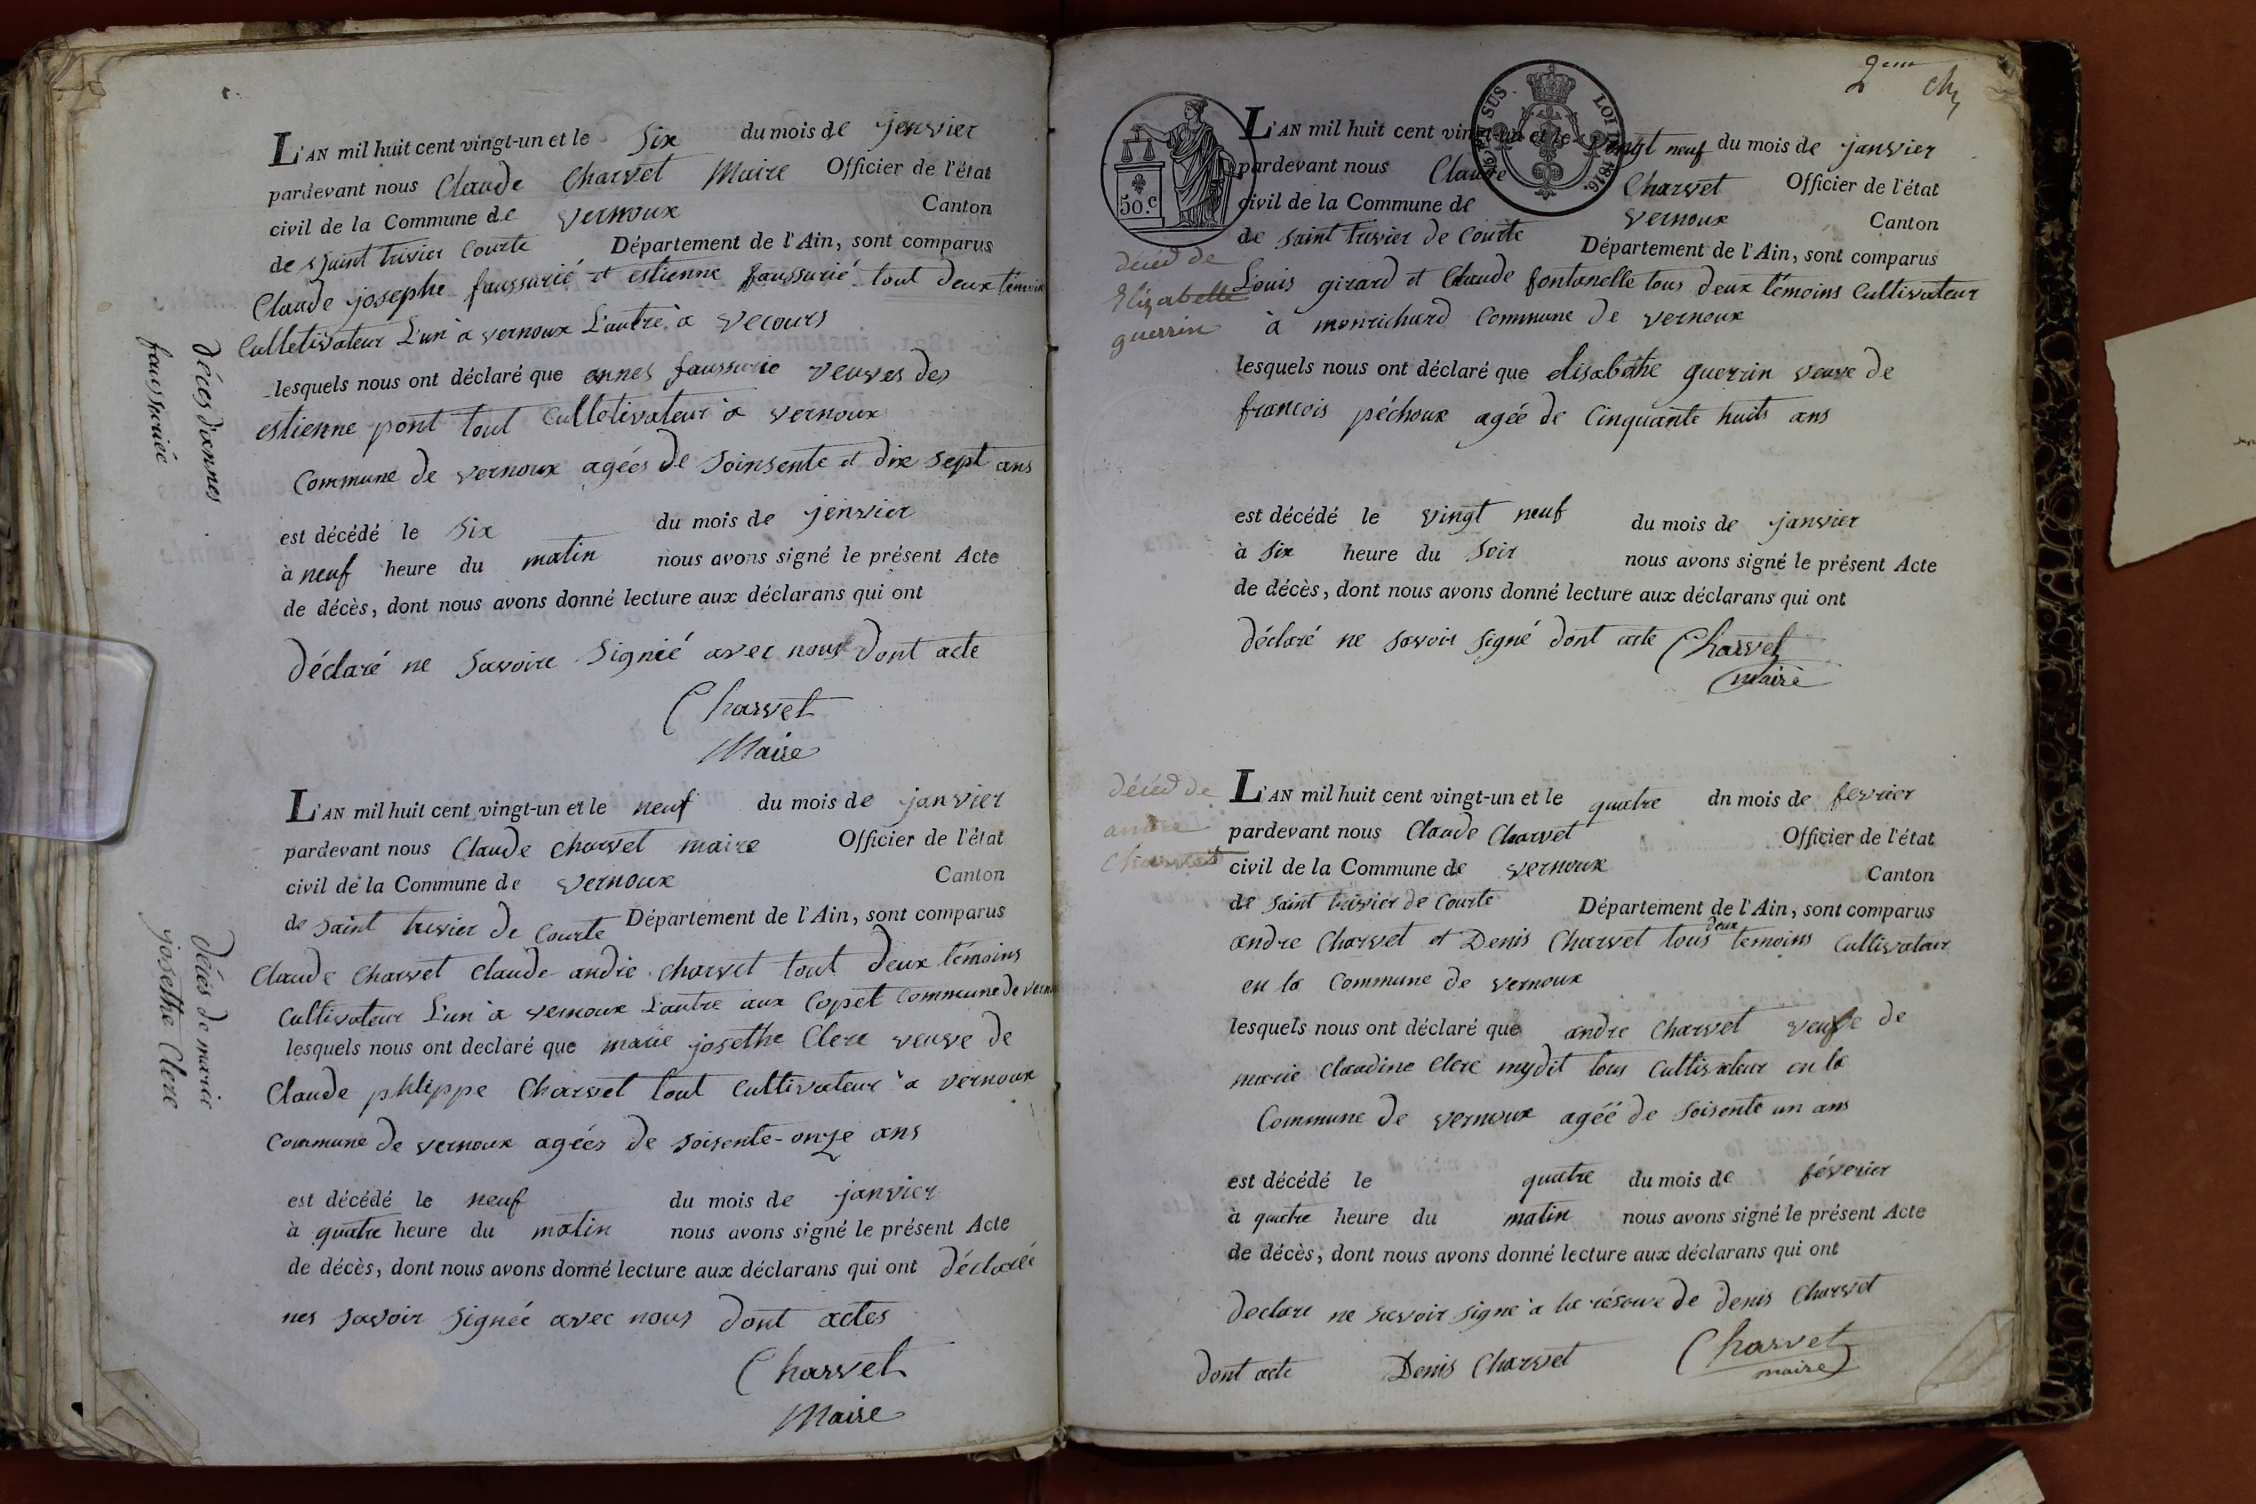 L'AN mil huit cent vingt-un et le Six du mois de jenvier
pardevant nous Claude Charvet Maire Officier de l'état
civil de la Commune de vernoux Canton
de sjaint trivier Courte Département de l'Ain, sont comparus
Claude josephe faussurié et estienne faussurié tout deux témoin
Culletivateur L'un a vernoux L'autre a vecours
lesquels nous ont déclaré que annes faussurie veuves des
estienne pont tout Culletivateur a vernoux
Commune de vernoux agées de Soinsente et dix sept ans
est décédé le Six du mois de jenvier
à neuf heure du matin nous avons signé le présent Acte
de décès, dont nous avons donné lecture aux déclarans qui ont
déclaré ne Savoire Signié avec nous dont acte
Charvet
Maire
décés d'annes
faussuriée
L'AN mil huit cent vingt-un et le neuf du mois de janvier
pardevant nous Claude charvet maire Officier de l'état
civil de la Commune de vernoux Canton
de Saint trivier de Courte Département de l'Ain, sont comparus
Claude Charvet Claude andre charvet tout deux témoins
Cultivateur L'un a vernoux L'autre aux Copet Commune de verno
lesquels nous ont déclaré que marie josethe Clere veuve de
Claude phlippe Charvet tout Cultivateur a vernoux
Commune de vernoux agées de soisente-onze ans
est décédé le neuf du mois de janvier
à quatre heure du matin nous avons signé le présent Acte
de décès, dont nous avons donné lecture aux déclarans qui ont déclaré
nes savoir signée avec nous dont actes
Charvet
Maire
décés de marie
josethe Clere
2eme Ch
50.c
EN SUS LOI DE 1816.
L'AN mil huit cent vingt-un et le vingt neuf du mois de janvier
pardevant nous Claude Charvet Officier de l'état
civil de la Commune de vernoux Canton
de saint trivier de Courte Département de l'Ain, sont comparus
Louis girard et Claude fontanelle tous deux témoins Cultivateur
à monrichard Commune de vernoux
lesquels nous ont déclaré que elisabethe guerrin veuve de
francois péchoux agée de Cinquante huits ans
est décédé le vingt neuf du mois de janvier
à six heure du soir nous avons signé le présent Acte
de décès, dont nous avons donné lecture aux déclarans qui ont
déclaré ne savoir signé dont acte Charvet
maire
déced de
Elizabelle
guerrin
L'AN mil huit cent vingt-un et le quatre dn mois de fevrier
pardevant nous Claude Charvet Officier de l'état
civil de la Commune de vernoux Canton
de saint trivier de Courte Département de l'Ain, sont comparus
andre Charvet et Denis Charvet tous deux temoins Cultivateur
en la Commune de vernoux
lesquels nous ont déclaré que andre Charvet veuf de
marie Claudine Clere tous Cultivateur en la
Commune de vernoux agéé de soisente un ans
est décédé le quatre du mois de féverier
à quatre heure du matin nous avons signé le présent Acte
de décès, dont nous avons donné lecture aux déclarans qui ont
declare ne savoir signe a la résarve de denis Charvet
dont acte Denis Charvet Charvet
maire
déced de
andre
Charvet